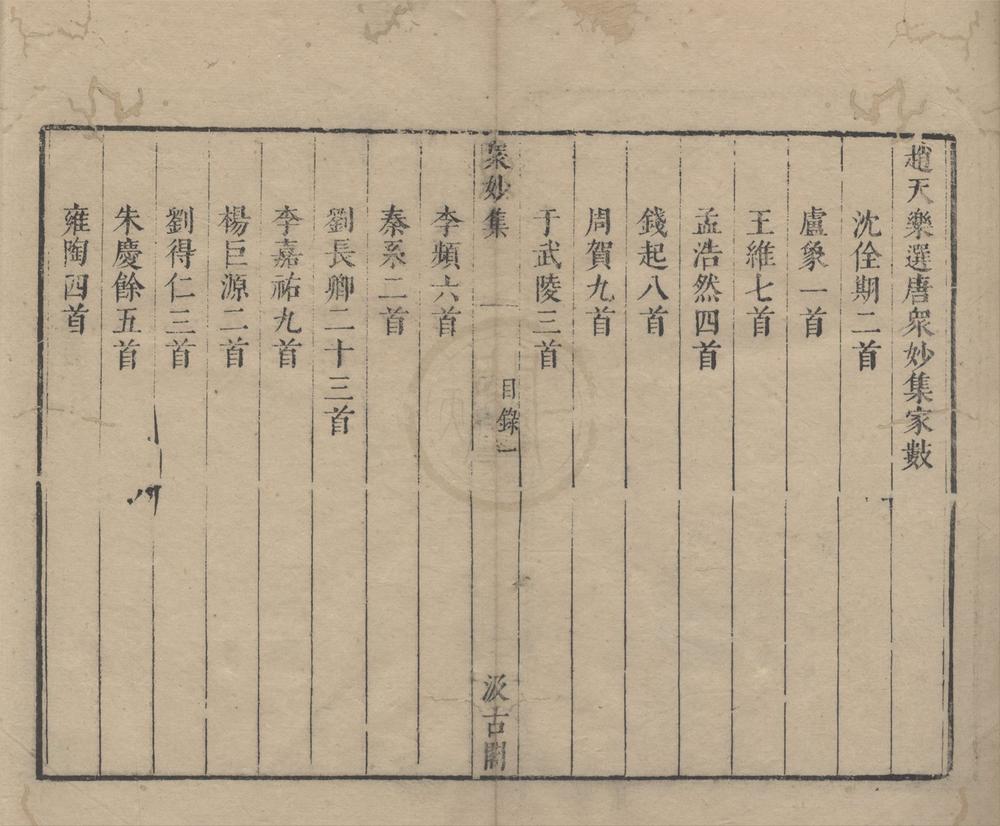 趙天樂選唐衆妙集家數
沈佺期二首
盧象一首
王維七首
孟浩然四首
錢起八首
周賀九首
于武陵三首
衆妙集 目錄一 汲古閣
李頻六首
秦系二首
劉長卿二十三首
李嘉祐九首
楊巨源二首
劉得仁三首
朱慶餘五首
雍陶四首